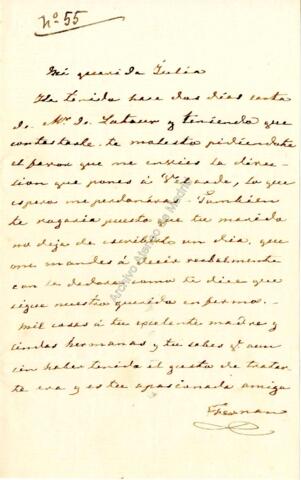 nº 55
Mi querida Julia
He tenido hace dos dias carta
de Mr de Latour y teniendo que
contestarle te molesto pidiendote
el favor que me envies la direc=
cion que pones á Velarde, lo que
espero me perdonarás. Tambien
te rogaria puesto que tu marido
no deja de escribirte un dia, que
me mandes á decir verbalmente
con la dadora como te dice que
sigue nuestro querido enfermo.
Mil cosas á tu excelente madre y
lindas hermanas y tu sabes qe aun
sin haber tenido el gusto de tratar
te era y es tu apasionada amiga
Fernan
Archivo Ateneo de Madrid